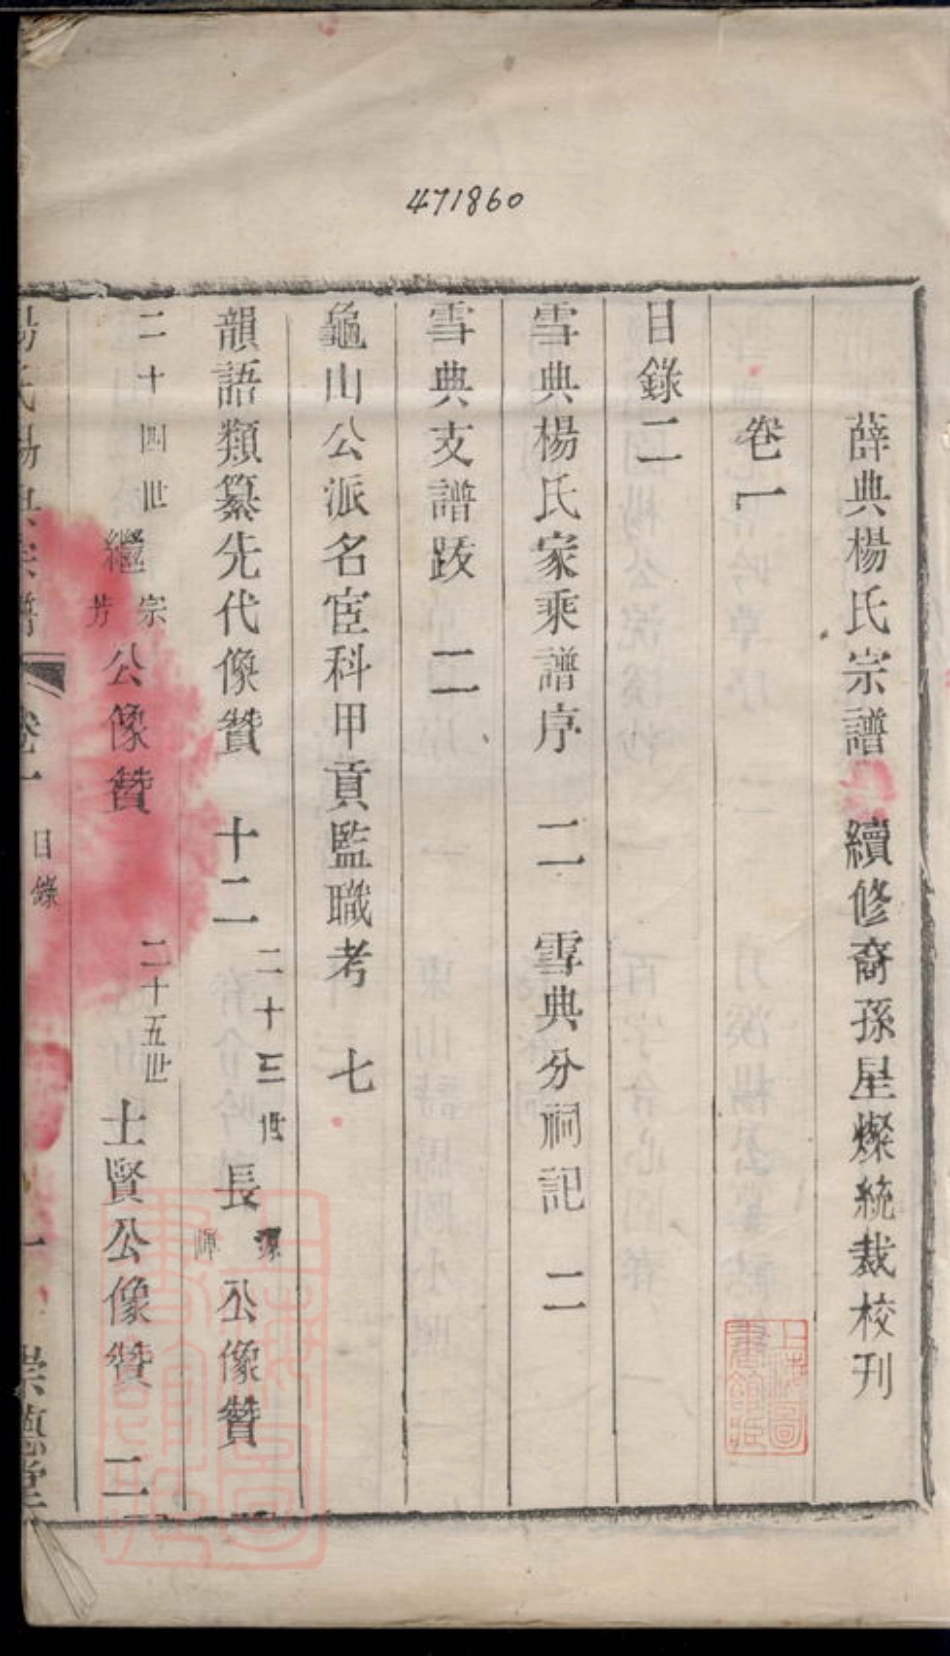 471860
薛典楊氏宗譜　續修裔孫星燦統裁校刊
卷一
目錄二
雪典楊氏家乘譜序　二　雪典分祠記　二
雪典支譜跋　二
龜山公派名宦科甲貢監職考　七
韻語類纂先代像贊　十二　二十三世長源公像贊
二十四世繼宗芳公像贊　二十五世士賢公像贊　二
卷一　目錄　一　崇德堂
上海圖書館藏
上海圖書館藏